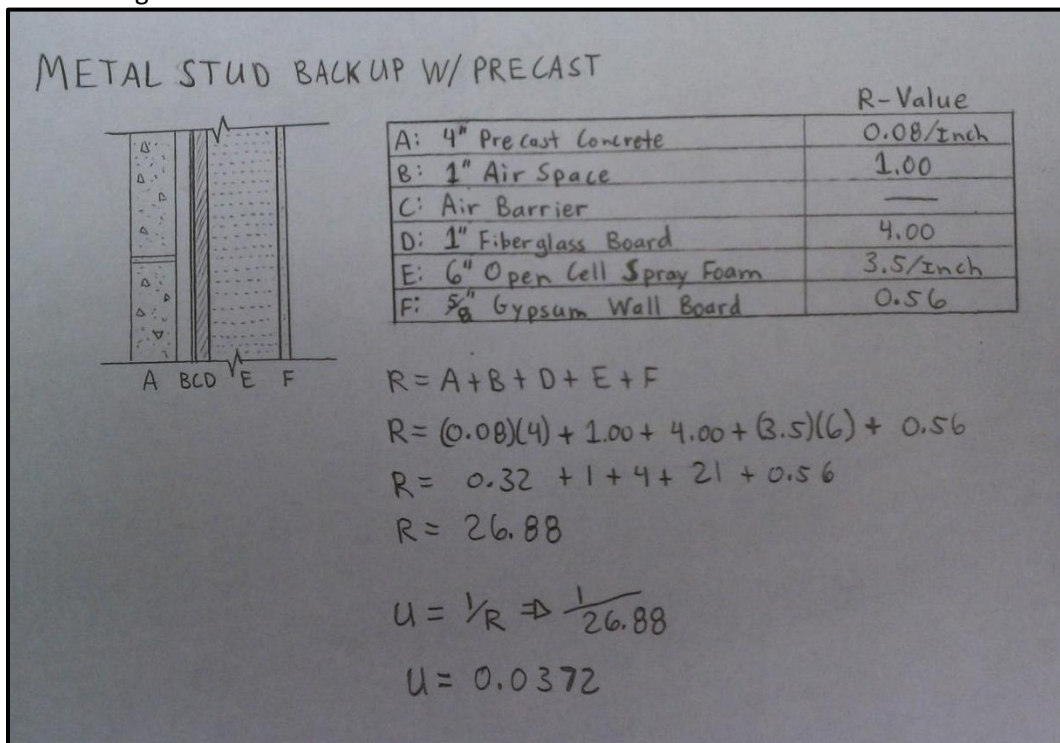 METAL STUD BACKUP W/ PRECAST
R-Value
A: 4" Precast Concrete 0.08/Inch
B: 1" Air Space 1.00
C: Air Barrier —
D: 1" Fiberglass Board 4.00
E: 6" Open Cell Spray Foam 3.5/Inch
F: 5/8" Gypsum Wall Board 0.56
A BCD E F
R = A + B + D + E + F
R = (0.08)(4) + 1.00 + 4.00 + (3.5)(6) + 0.56
R = 0.32 + 1 + 4 + 21 + 0.56
R = 26.88
U = 1/R ⇒ 1/26.88
U = 0.0372